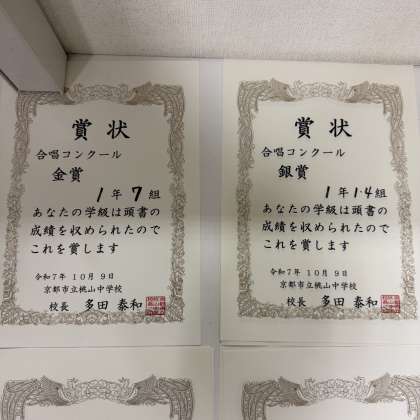 賞状
合唱コンクール
金賞
1年7組
あなたの学級は頭書の
成績を収められたので
これを賞します
令和7年10月9日
京都市立桃山中学校
校長 多田泰和
賞状
合唱コンクール
銀賞
1年1.4組
あなたの学級は頭書の
成績を収められたので
これを賞します
令和7年10月9日
京都市立桃山中学校
校長 多田泰和